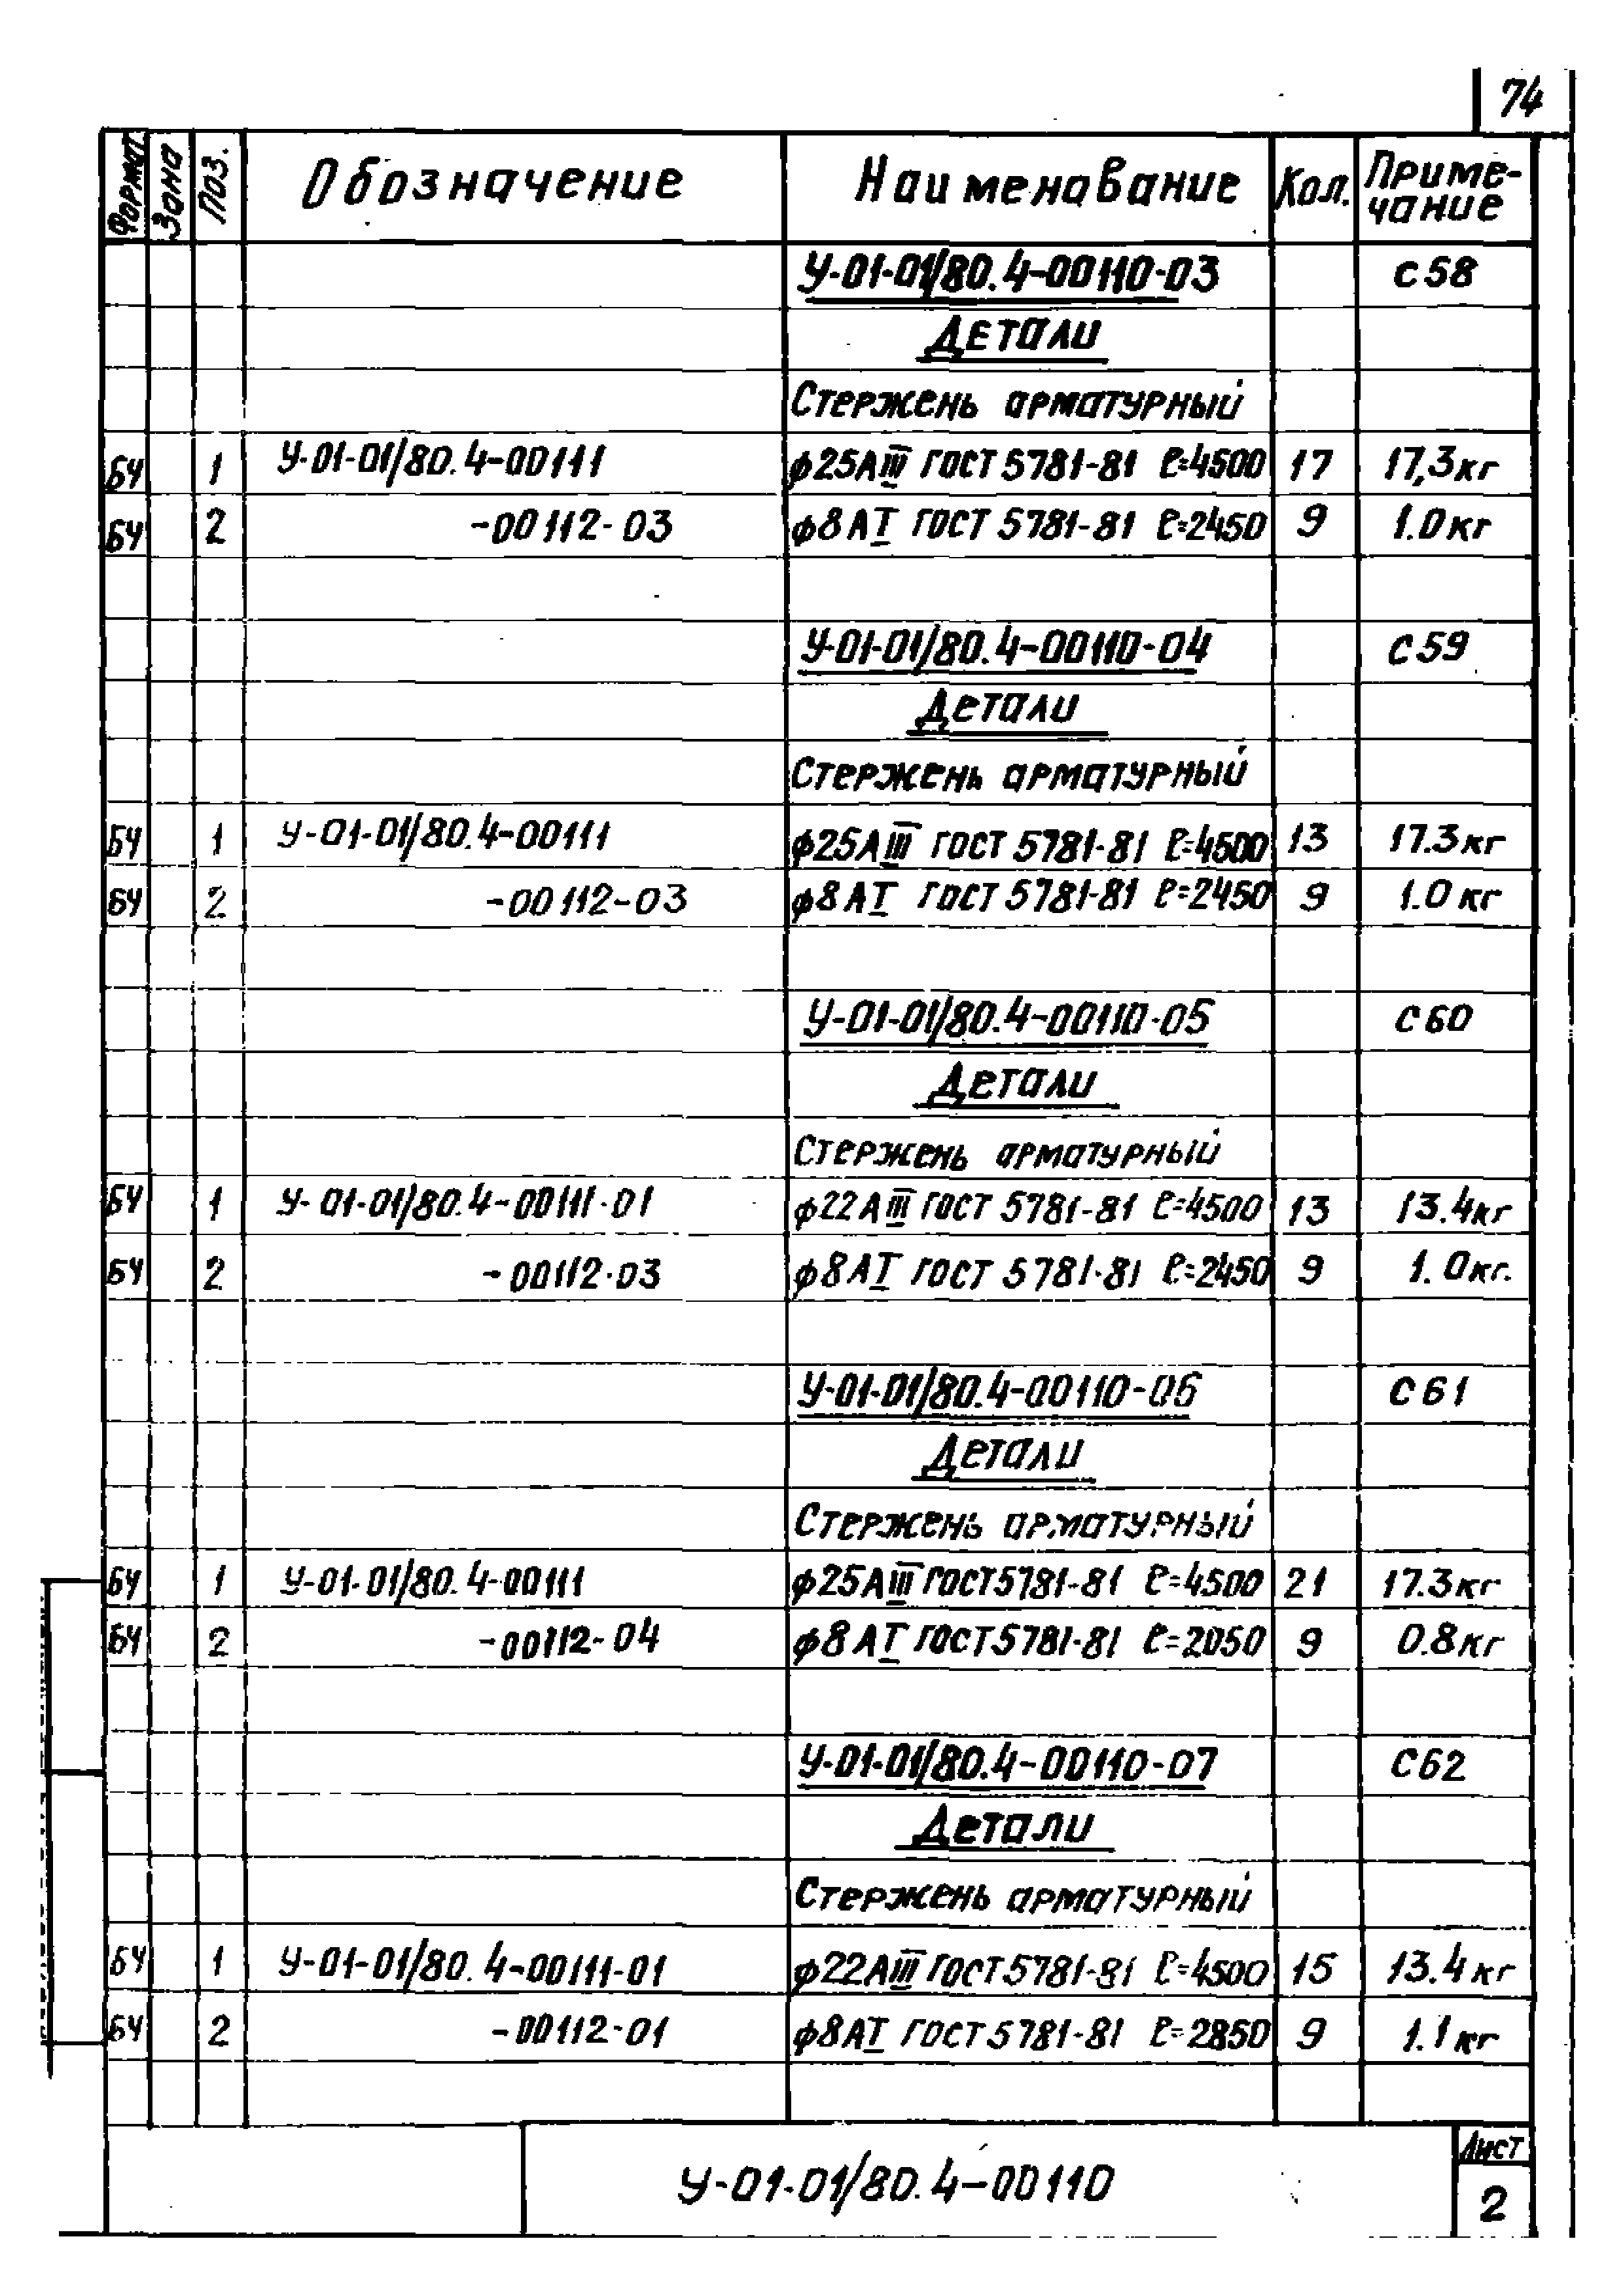 74
Формат Зона Поз. Обозначение Наименование Кол. Приме-
чание
У-01-01/80.4-00110-03 С58
Детали
Стержень арматурный
БЧ 1 У-01-01/80.4-00111 ф25АIII ГОСТ 5781-81 ℓ=4500 17 17,3кг
БЧ 2 -00112-03 ф8АI ГОСТ 5781-81 ℓ=2450 9 1.0кг
У-01-01/80.4-00110-04 С59
Детали
Стержень арматурный
БЧ 1 У-01-01/80.4-00111 ф25АIII ГОСТ 5781-81 ℓ=4500 13 17.3кг
БЧ 2 -00112-03 ф8АI ГОСТ 5781-81 ℓ=2450 9 1.0кг
У-01-01/80.4-00110-05 С60
Детали
Стержень арматурный
БЧ 1 У-01-01/80.4-00111-01 ф22АIII ГОСТ 5781-81 ℓ=4500 13 13.4кг
БЧ 2 -00112-03 ф8АI ГОСТ 5781-81 ℓ=2450 9 1.0кг.
У-01-01/80.4-00110-06 С61
Детали
Стержень арматурный
БЧ 1 У-01-01/80.4-00111 ф25АIII ГОСТ 5781-81 ℓ=4500 21 17.3кг
БЧ 2 -00112-04 ф8АI ГОСТ 5781-81 ℓ=2050 9 0.8кг
У-01-01/80.4-00110-07 С62
Детали
Стержень арматурный
БЧ 1 У-01-01/80.4-00111-01 ф22АIII ГОСТ 5781-81 ℓ=4500 15 13.4кг
БЧ 2 -00112-01 ф8АI ГОСТ 5781-81 ℓ=2850 9 1.1кг
У-01-01/80.4-00110
Лист
2